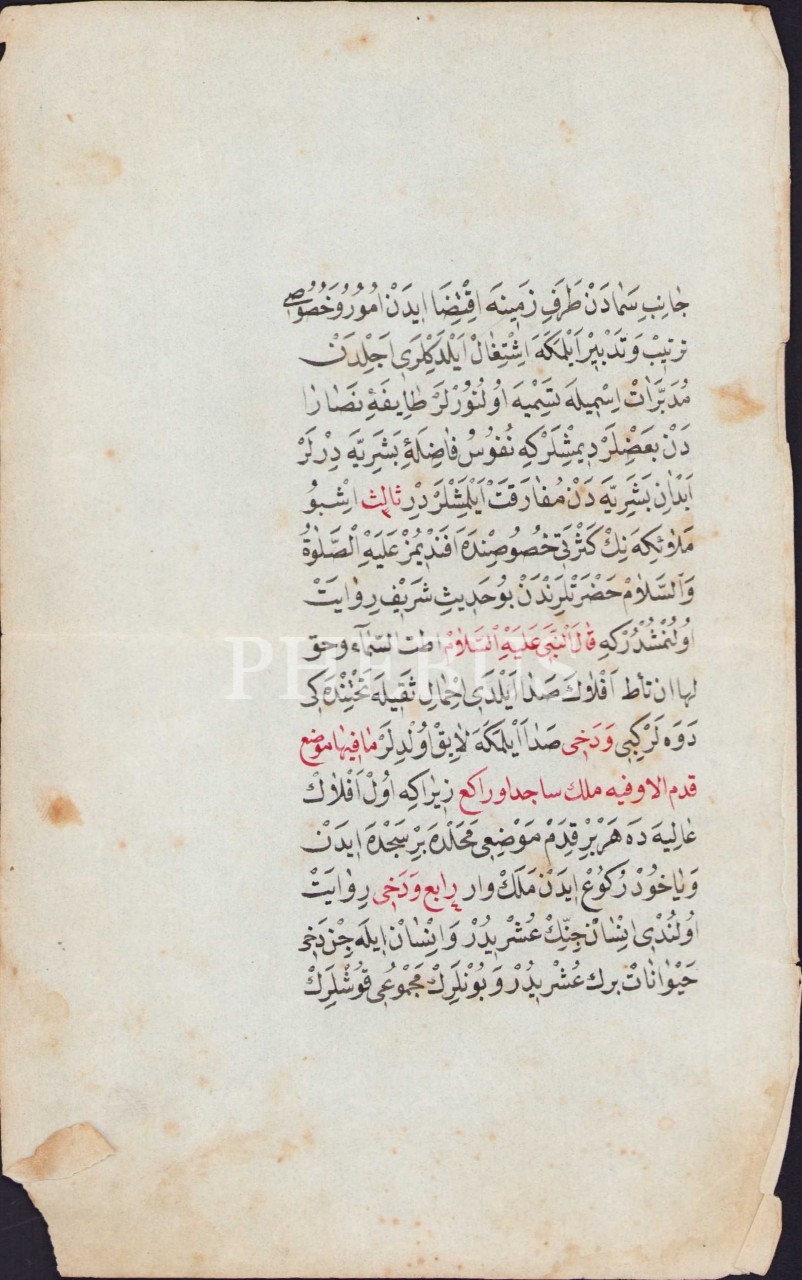 جَانِبِ سَمَادَنْ طَرَفِ زَمِينَه اِقْتِضَا اِيدَنْ اُمُورُ وَخُصُوصِى
تَرْتِيبْ وَتَدْبِيرْ اَيْلَمَكَهَ اِشْتِغَالْ اَيْلَدِكْلَرِى اَجْلِدَنْ
مُدَبِّرَاتْ اِسْمِيلَه تَسْمِيَه اُولُنُورْلَرْ طَايِفَۀِ نَصَارَا
دَنْ بَعْضِلَرْ دِيمِشْلَرْكِه نُفُوسُ فَاضِلَۀِ بَشَرِيَّه دِرْلَرْ
اَبْدَانِ بَشَرِيَّه دَنْ مُفَارَقَتْ اَيْلَمِشْلَرْدِرْ ثَالِث اِشْبُو
مَلَائِكَه نِكْ كَثْرَتِى خُصُوصِنْدَه اَفَنْدِيمُزْ عَلَيْهِ الْصَّلٰوةُ
وَالسَّلَامْ حَضْرَتْلَرِنْدَنْ بُو حَدِيثِ شَرِيفِ رِوَايَتْ
اُولُنْمُشْدُرْكِه قَالَ النَّبِى عَلَيْهِ السَّلَامْ اطت السَّمَآء وحق
لها ان تأط اَفْلَاكَ صَدَا اَيْلَدِى اَحْمَالِ ثَقِيلَه تَحْتِنْدَه كِى
دَوَه لَرْ كِبِى وَدَخِى صَدَا اَيْلَمَكَهَ لَايِقْ اُولْدِلَرْ مَا فِيهَا موضع
قدم الا وفيه ملك ساجد او راكع زِيرَاكِه اُولْ اَفْلَاكْ
عَالِيَه دَه هَرْ بِرْ قِدَمْ مَوْضِعِى مَحَلْدَه بِرْ سَجْدَه اِيدَنْ
وَيَاخُودْ رُكُوعْ اِيدَنْ مَلَكْ وار رابع وَدَخِى رِوَايَتْ
اُولُنْدِى اِنْسَانْ جِنِّكْ عُشْرِيدُرْ وَاِنْسَانْ اِيلَه جِنْ دَخِى
حَيْوَانَاتْ برك عُشْرِيدُرْ وَبُونْلَرِكْ مَجْمُوعِى قُوشْلَرِكْ
PHEBUS